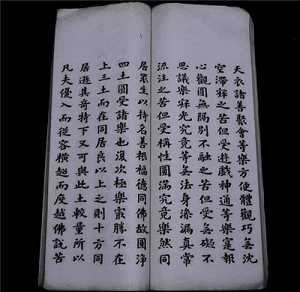 天衣諸善聚會等樂方便體觀巧無沈
空滯寂之苦但受遊戲神通等樂寔報
心觀圓無隔別不融之苦但受無礙不
思議樂寂光究竟等無法身滲漏真常
流注之苦但受稱性圓滿究竟樂然同
居衆生以持名善根福德同佛故圓淨
四土圓受諸樂也復次極樂最勝不在
上三土而在同居良以上之則十方同
居遜其奇特下又可與此土較量所以
凡夫優入而從容橫超而度越佛說苦